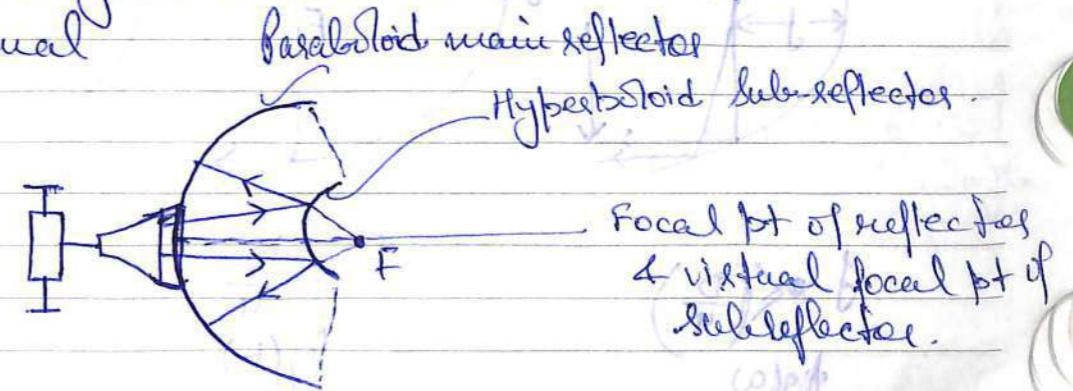 ual
Paraboloid main reflector
Hyperboloid sub-reflector.
Focal pt of reflector
F
& virtual focal pt of
subreflector.